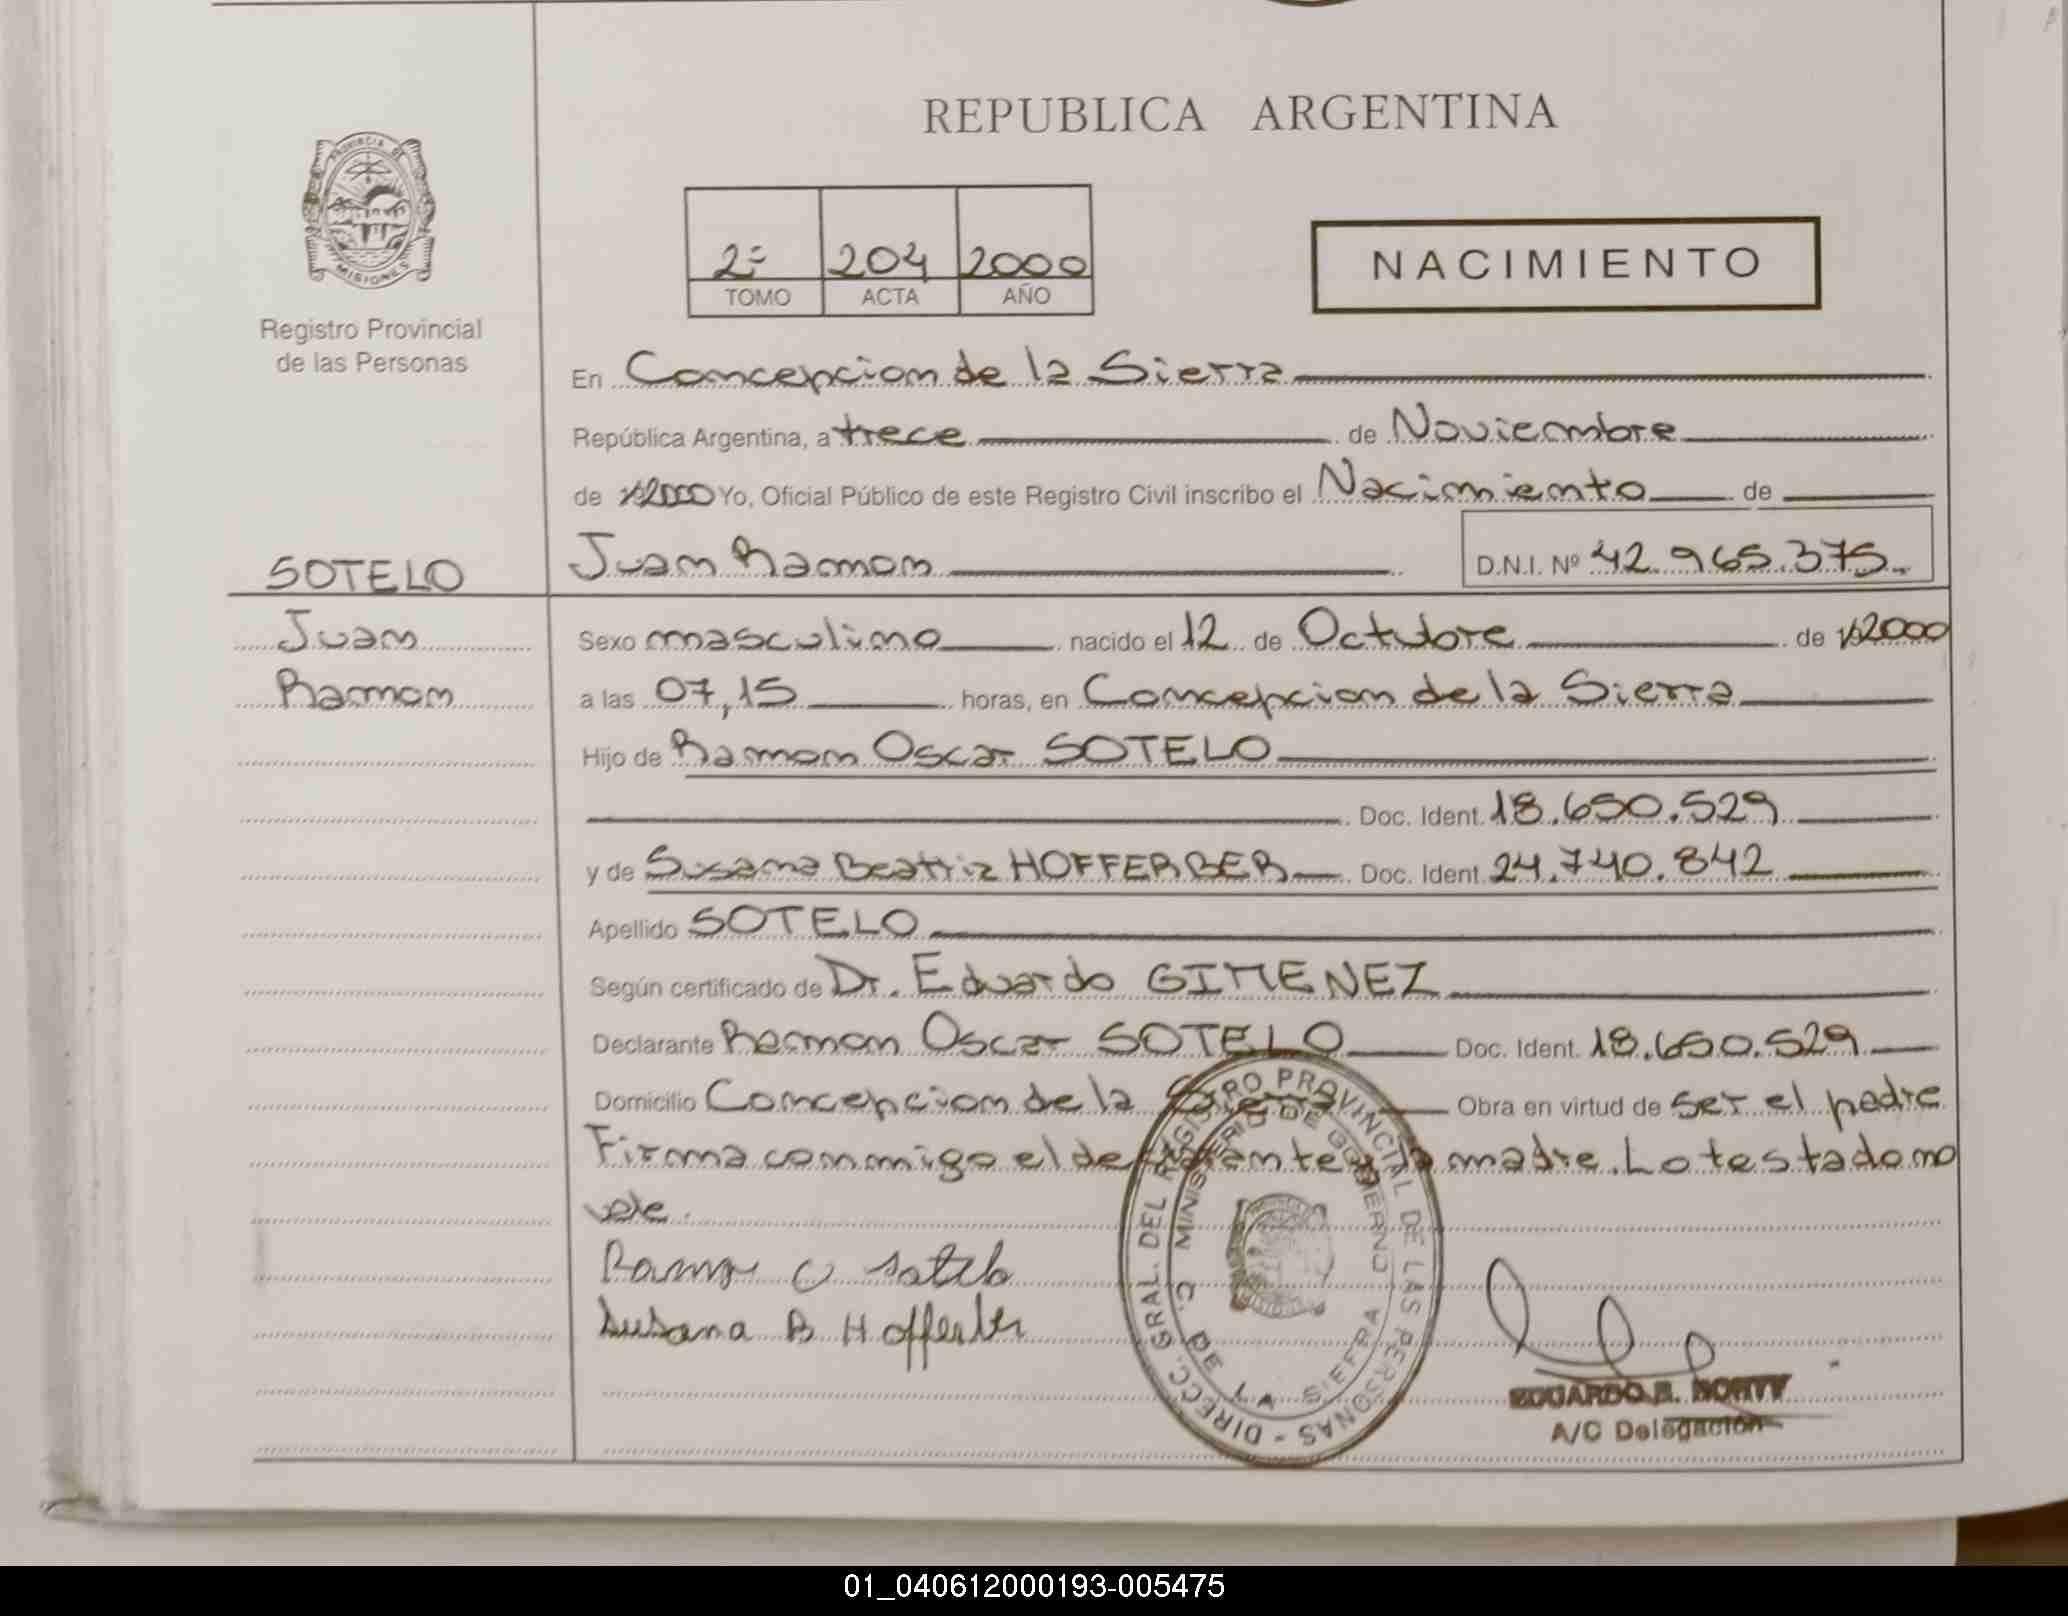 REPUBLICA ARGENTINA
PROVINCIA DE
MISIONES
Registro Provincial
de las Personas
2º 204 2000
TOMO ACTA AÑO
NACIMIENTO
En Concepcion de la Sierra
República Argentina, a trece de Noviembre
de 2000 Yo, Oficial Público de este Registro Civil inscribo el Nacimiento de
SOTELO
Juan
Ramon
Juan Ramon D.N.I. Nº 42.965.375
Sexo masculino nacido el 12 de Octubre de 2000
a las 07,15 horas, en Concepcion de la Sierra
Hijo de Ramon Oscar SOTELO
Doc. Ident. 18.650.529
y de Susana Beatriz HOFFERBER Doc. Ident. 24.740.842
Apellido SOTELO
Según certificado de Dr. Eduardo GIMENEZ
Declarante Ramon Oscar SOTELO Doc. Ident. 18.650.529
Domicilio Concepcion de la Sierra Obra en virtud de ser el padre
Firma conmigo el declarante y la madre. Lo testado no
vale.
Ramon O Sotelo
Susana B Hofferber
DIRECC. GRAL. DEL REGISTRO PROVINCIAL DE LAS PERSONAS -
MINISTERIO DE GOBIERNO
C. DE LA SIERRA
EDUARDO R.
A/C Delegación
01_040612000193-005475